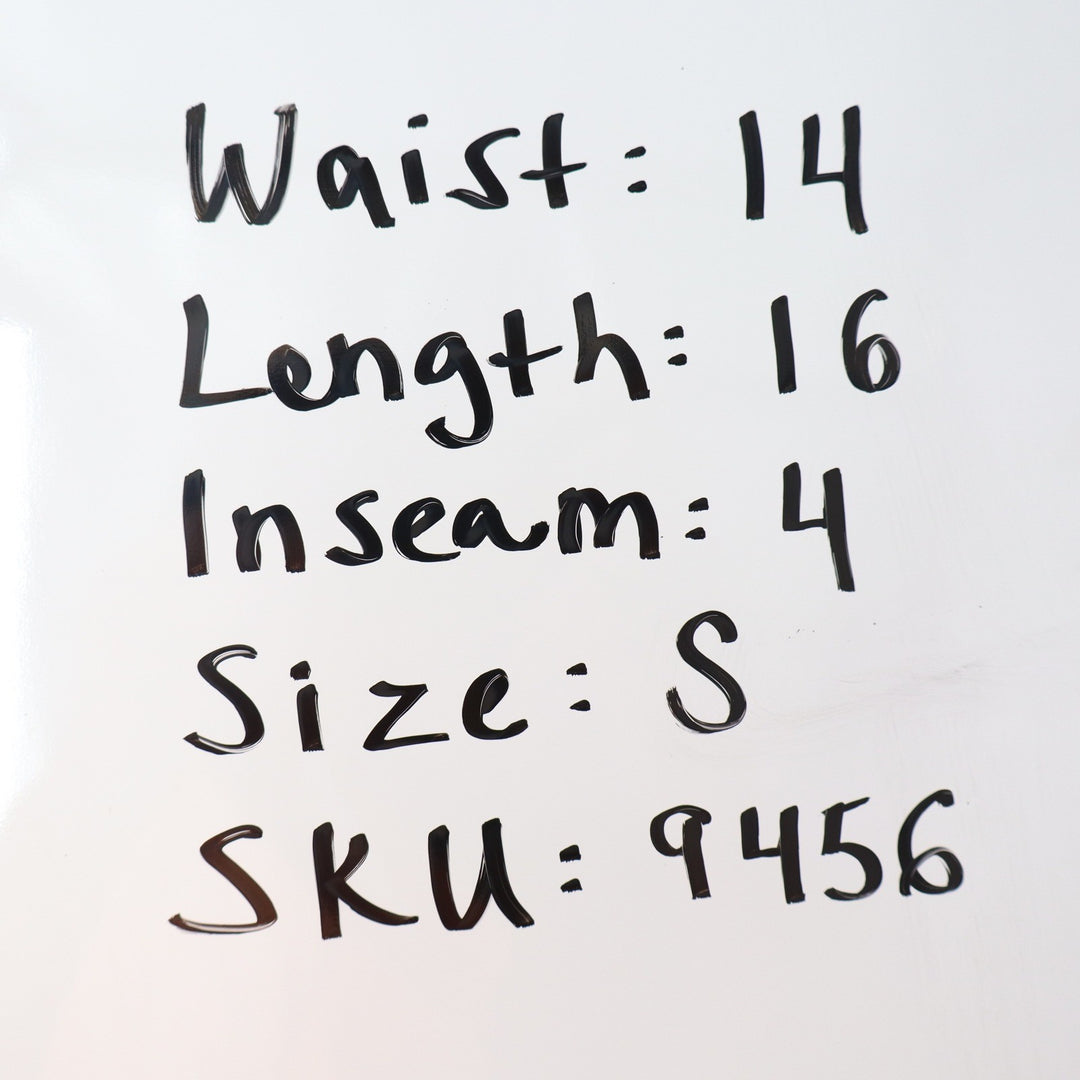 Waist: 14
Length: 16
Inseam: 4
Size: S
SKU: 9456